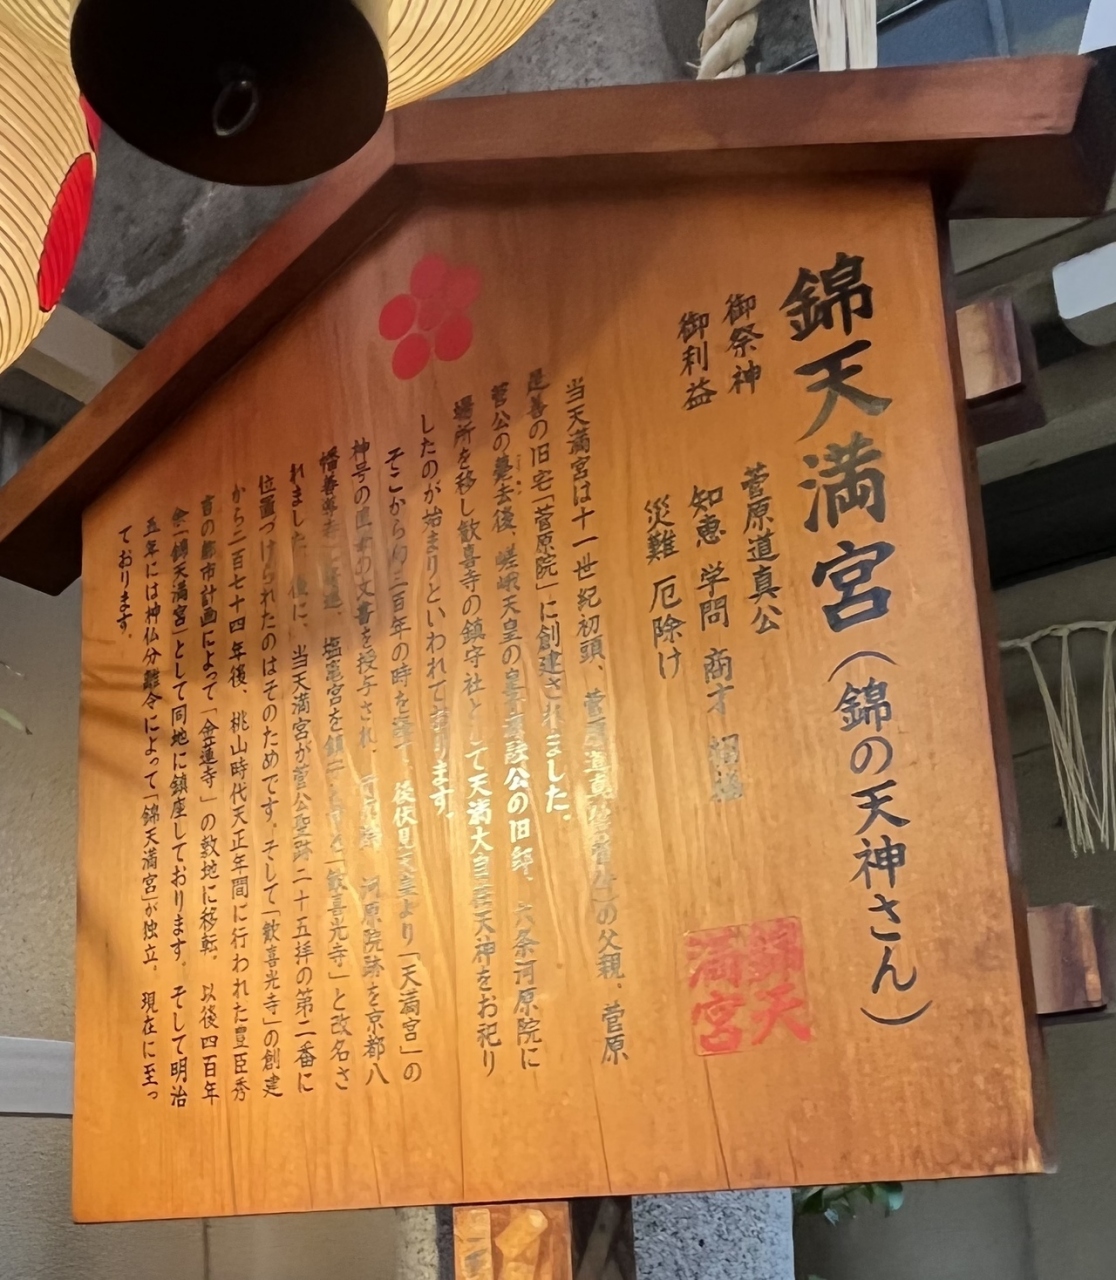 錦天満宮（錦の天神さん）
御祭神 菅原道真公
御利益 知恵 学問 商才
災難 厄除け
錦天満宮
当天満宮は十一世紀初頭、菅原道真の父親、菅原
是善の旧宅「菅原院」に創建されました。
菅公の薨去後、嵯峨天皇の公の旧邸、六条河原院に
場所を移し歓喜寺の鎮守社として天満大自在天神をお祀り
したのが始まりといわれております。
そこから約三百年の時を、後伏見天皇より「天満宮」の
神号の文書を授与され、河原院跡を京都八
幡善導寺塩竈宮を鎮「歓喜光寺」と改名さ
れました。後に、当天満宮が菅公聖跡二十五拝の第二番に
位置づけられたのはそのためです。そして「歓喜光寺」の創建
から二百七十四年後、桃山時代天正年間に行われた豊臣秀
吉の都市計画によって「金蓮寺」の敷地に移転。以後四百年
余「錦天満宮」として同地に鎮座しております。そして明治
五年には神仏分離令によって「錦天満宮」が独立。現在に至っ
ております。